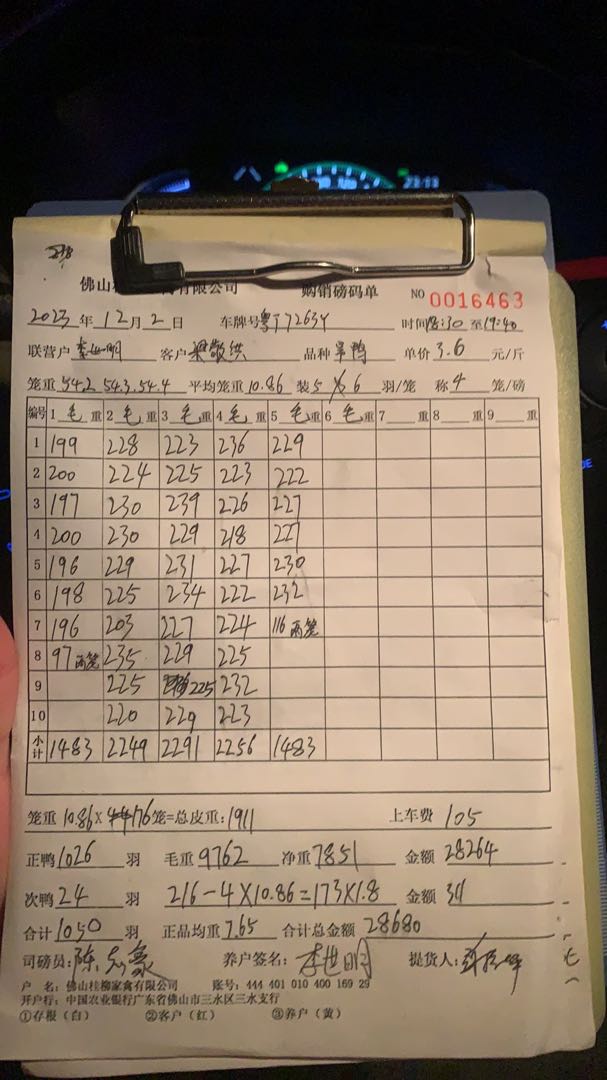 佛山 有限公司 购销磅码单 NO 0016463
2023年12月2日 车牌号粤J72634 时间18:30至19:40
联营户李世明 客户梁敬洪 品种旱鸭 单价3.6元/斤
笼重54.2 54.3.54.4 平均笼重10.86 装5×6羽/笼 称4笼/磅
编号 1毛重 2毛重 3毛重 4毛重 5毛重 6毛重 7重 8重 9重
1 199 228 223 236 229
2 200 224 225 223 222
3 197 230 239 226 227
4 200 230 229 218 227
5 196 229 231 227 230
6 198 225 234 222 232
7 196 203 227 224 116两笼
8 97两笼 235 229 225
9 225 225 232
10 220 229 223
小计 1483 2249 2291 2256 1483
笼重10.86×176笼=总皮重:1911 上车费105
正鸭1026羽 毛重9762 净重7851 金额28264
次鸭24羽 216-4×10.86=173×1.8 金额311
合计1050羽 正品均重7.65 合计总金额28680
司磅员:陈志豪 养户签名:李世明 提货人:
户 名:佛山桂柳家禽有限公司 账号:444 401 010 400 169 29
开户行:中国农业银行广东省佛山市三水区三水支行
①存根(白) ②客户(红) ③养户(黄)